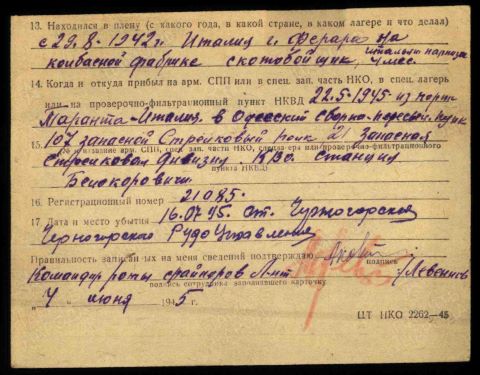 13. Находился в плену (с какого года, в какой стране, в каком лагере и что делал)
с 29.8-1942г. Италия г. Ферара на
колбасной фабрике скотобойщик, 4 мес.
14. Когда и откуда прибыл на арм. СПП или в спец. зап. часть НКО, в спец. лагерь
или на проверочно-фильтрационный пункт НКВД 22.5-1945 из порта
Маранта-Италия. в Одесский сборно-пересыл. пунк
107 запасной Стрелковый полк 21 Запасная
15.
Стрелковая дивизия. КВО. Станция
пункта НКВД)
Белокоровичи
16. Регистрационный номер 21085.
17. Дата и место убытия 16.07.45. Ст. Черногорская
Черногорское РудоУправление
Правильность записанных на меня сведений подтверждаю
подпись
Командир роты Л-нт /Левенцов
подпись сотрудника заполнявшего карточку
„4" июня 1945 г.
ЦТ НКО 2262—45